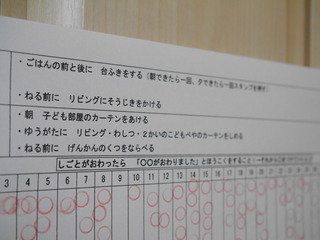 ・ごはんの前と後に　台ふきをする（朝できたら一回、夕できたら一回スタンプを押す）
・ねる前に　リビングにそうじきをかける
・朝　子ども部屋のカーテンをあける
・ゆうがたに　リビング・わしつ・２かいのこどもべやのカーテンをしめる
・ねる前に　げんかんのくつをならべる
しごとがおわったら　「〇〇がおわりました」とほうこくをすること！
3 4 5 6 7 8 9 10 11 12 13 14 15 16 17 18 19 20 21 22 23